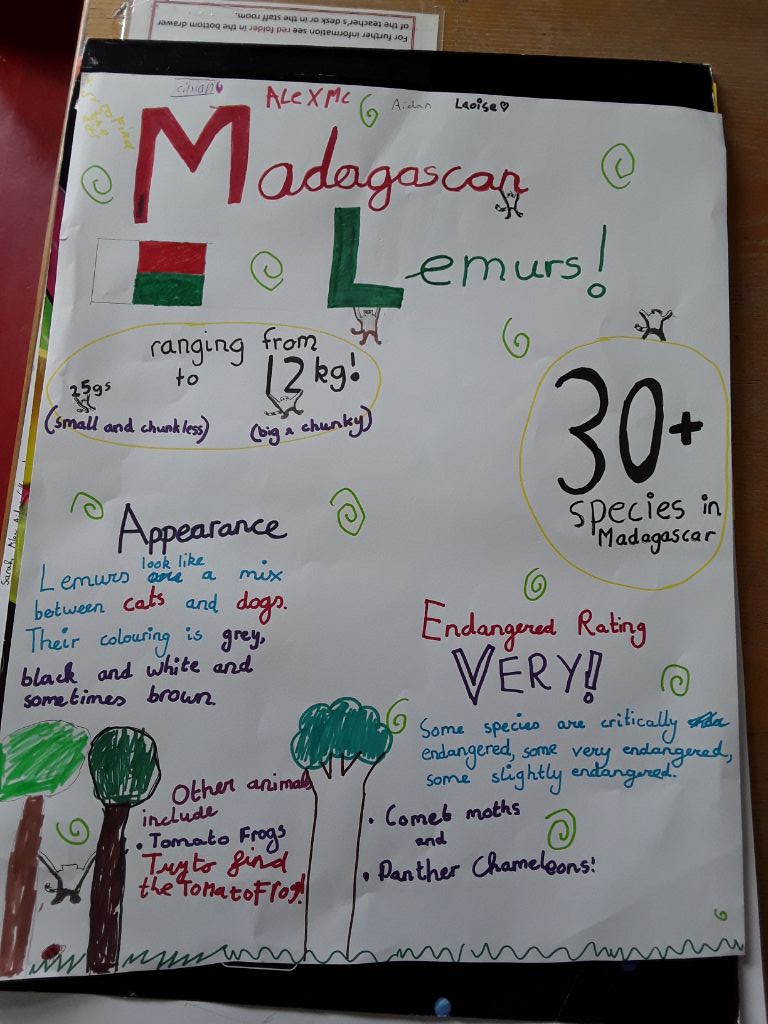 For further information see red folder in the bottom drawer
of the teacher's desk or in the staff room.
ALEX Mc
Aidan
Laoise
Madagascan
Lemurs!
ranging from
25gs
to
12kg!
(small and chunkless)
(big & chunky)
30+
species in
Madagascar
Appearance
Lemurs look like a mix
between cats and dogs.
Their colouring is grey,
black and white and
sometimes brown.
Endangered Rating
VERY!
Some species are critically
endangered, some very endangered,
some slightly endangered.
Other animals
include
• Tomato Frogs
Try to find
the Tomato Frog!
• Comet moths
and
• Panther Chameleons!